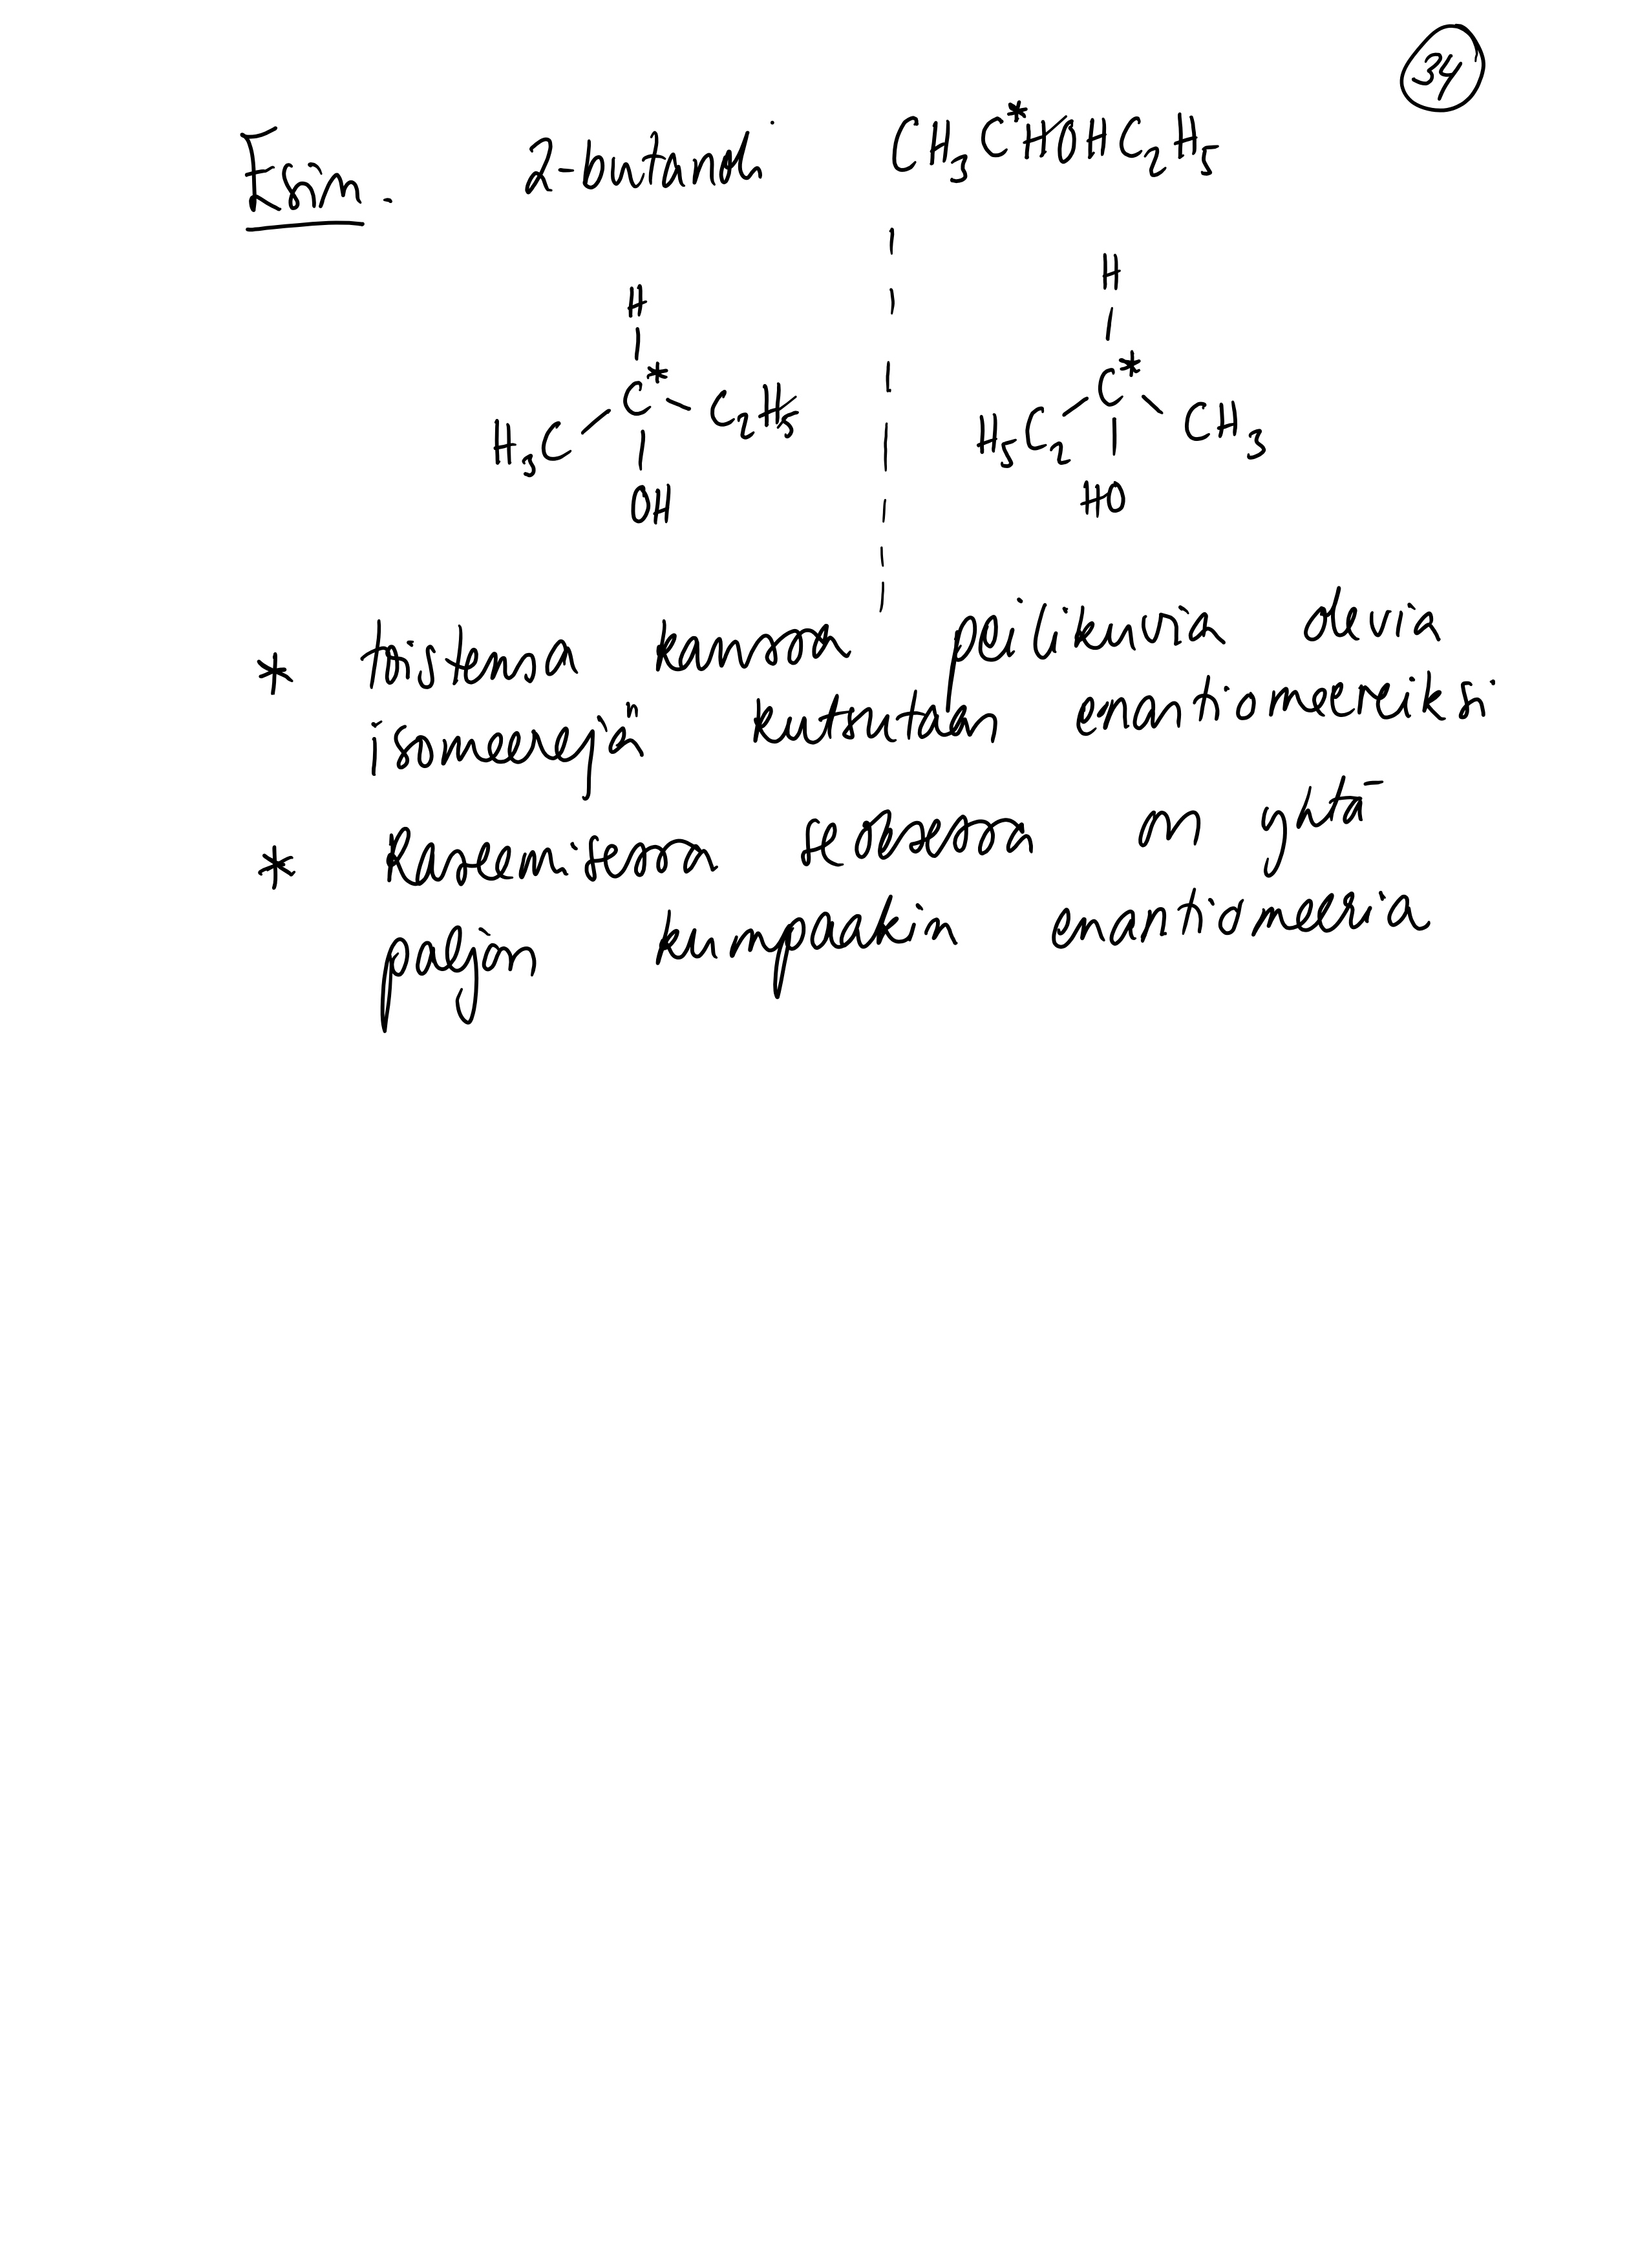 34
Esim. 2-butanoli CH₃C*HOHC₂H₅
H H
C* C*
H₃C C₂H₅ H₅C₂ CH₃
OH HO
* toistensa kanssa peilikuvia olevia
isomeerejä kutsutaan enantiomeereiksi
* Raseemisessa seoksessa on yhtä
paljon kumpaakin enantiomeeria